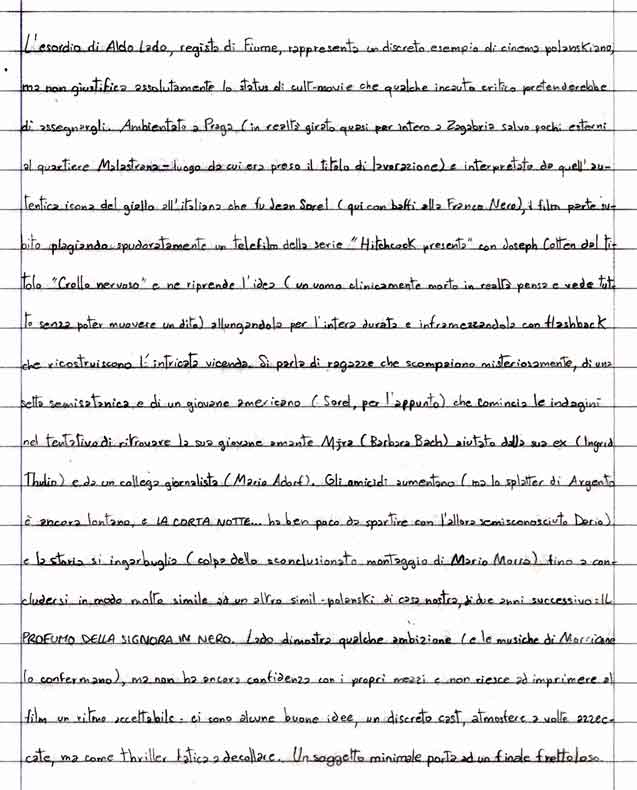 L'esordio di Aldo Lado, regista di Fiume, rappresenta un discreto esempio di cinema polanskiano,
ma non giustifica assolutamente lo status di cult-movie che qualche incauto critico pretenderebbe
di assegnargli. Ambientato a Praga (in realtà girato quasi per intero a Zagabria salvo pochi esterni
al quartiere Malastrana - luogo da cui era preso il titolo di lavorazione) e interpretato da quell'au-
tentica icona del giallo all'italiana che fu Jean Sorel (qui con baffi alla Franco Nero), il film parte su-
bito plagiando spudoratamente un telefilm della serie "Hitchcock presenta" con Joseph Cotten dal ti-
tolo "Crollo nervoso" e ne riprende l'idea (un uomo clinicamente morto in realtà pensa e vede tut-
to senza poter muovere un dito) allungandola per l'intera durata e inframezzandola con flashback
che ricostruiscono l'intricata vicenda. Si parla di ragazze che scompaiono misteriosamente, di una
setta semisatanica e di un giovane americano (Sorel, per l'appunto) che comincia le indagini
nel tentativo di ritrovare la sua giovane amante Mira (Barbara Bach) aiutato dalla sua ex (Ingrid
Thulin) e da un collega giornalista (Mario Adorf). Gli omicidi aumentano (ma lo splatter di Argento
è ancora lontano, e LA CORTA NOTTE... ha ben poco da spartire con l'allora semisconosciuto Dario)
e la storia si ingarbuglia (colpa dello sconclusionato montaggio di Mario Morra) fino a con-
cludersi in modo molto simile ad un altro simil-polanski di casa nostra, di due anni successivo: IL
PROFUMO DELLA SIGNORA IN NERO. Lado dimostra qualche ambizione (e le musiche di Morricone
lo confermano), ma non ha ancora confidenza con i propri mezzi e non riesce ad imprimere al
film un ritmo accettabile - ci sono alcune buone idee, un discreto cast, atmosfere a volte azzec-
cate, ma come thriller fatica a decollare. Un soggetto minimale porta ad un finale frettoloso.